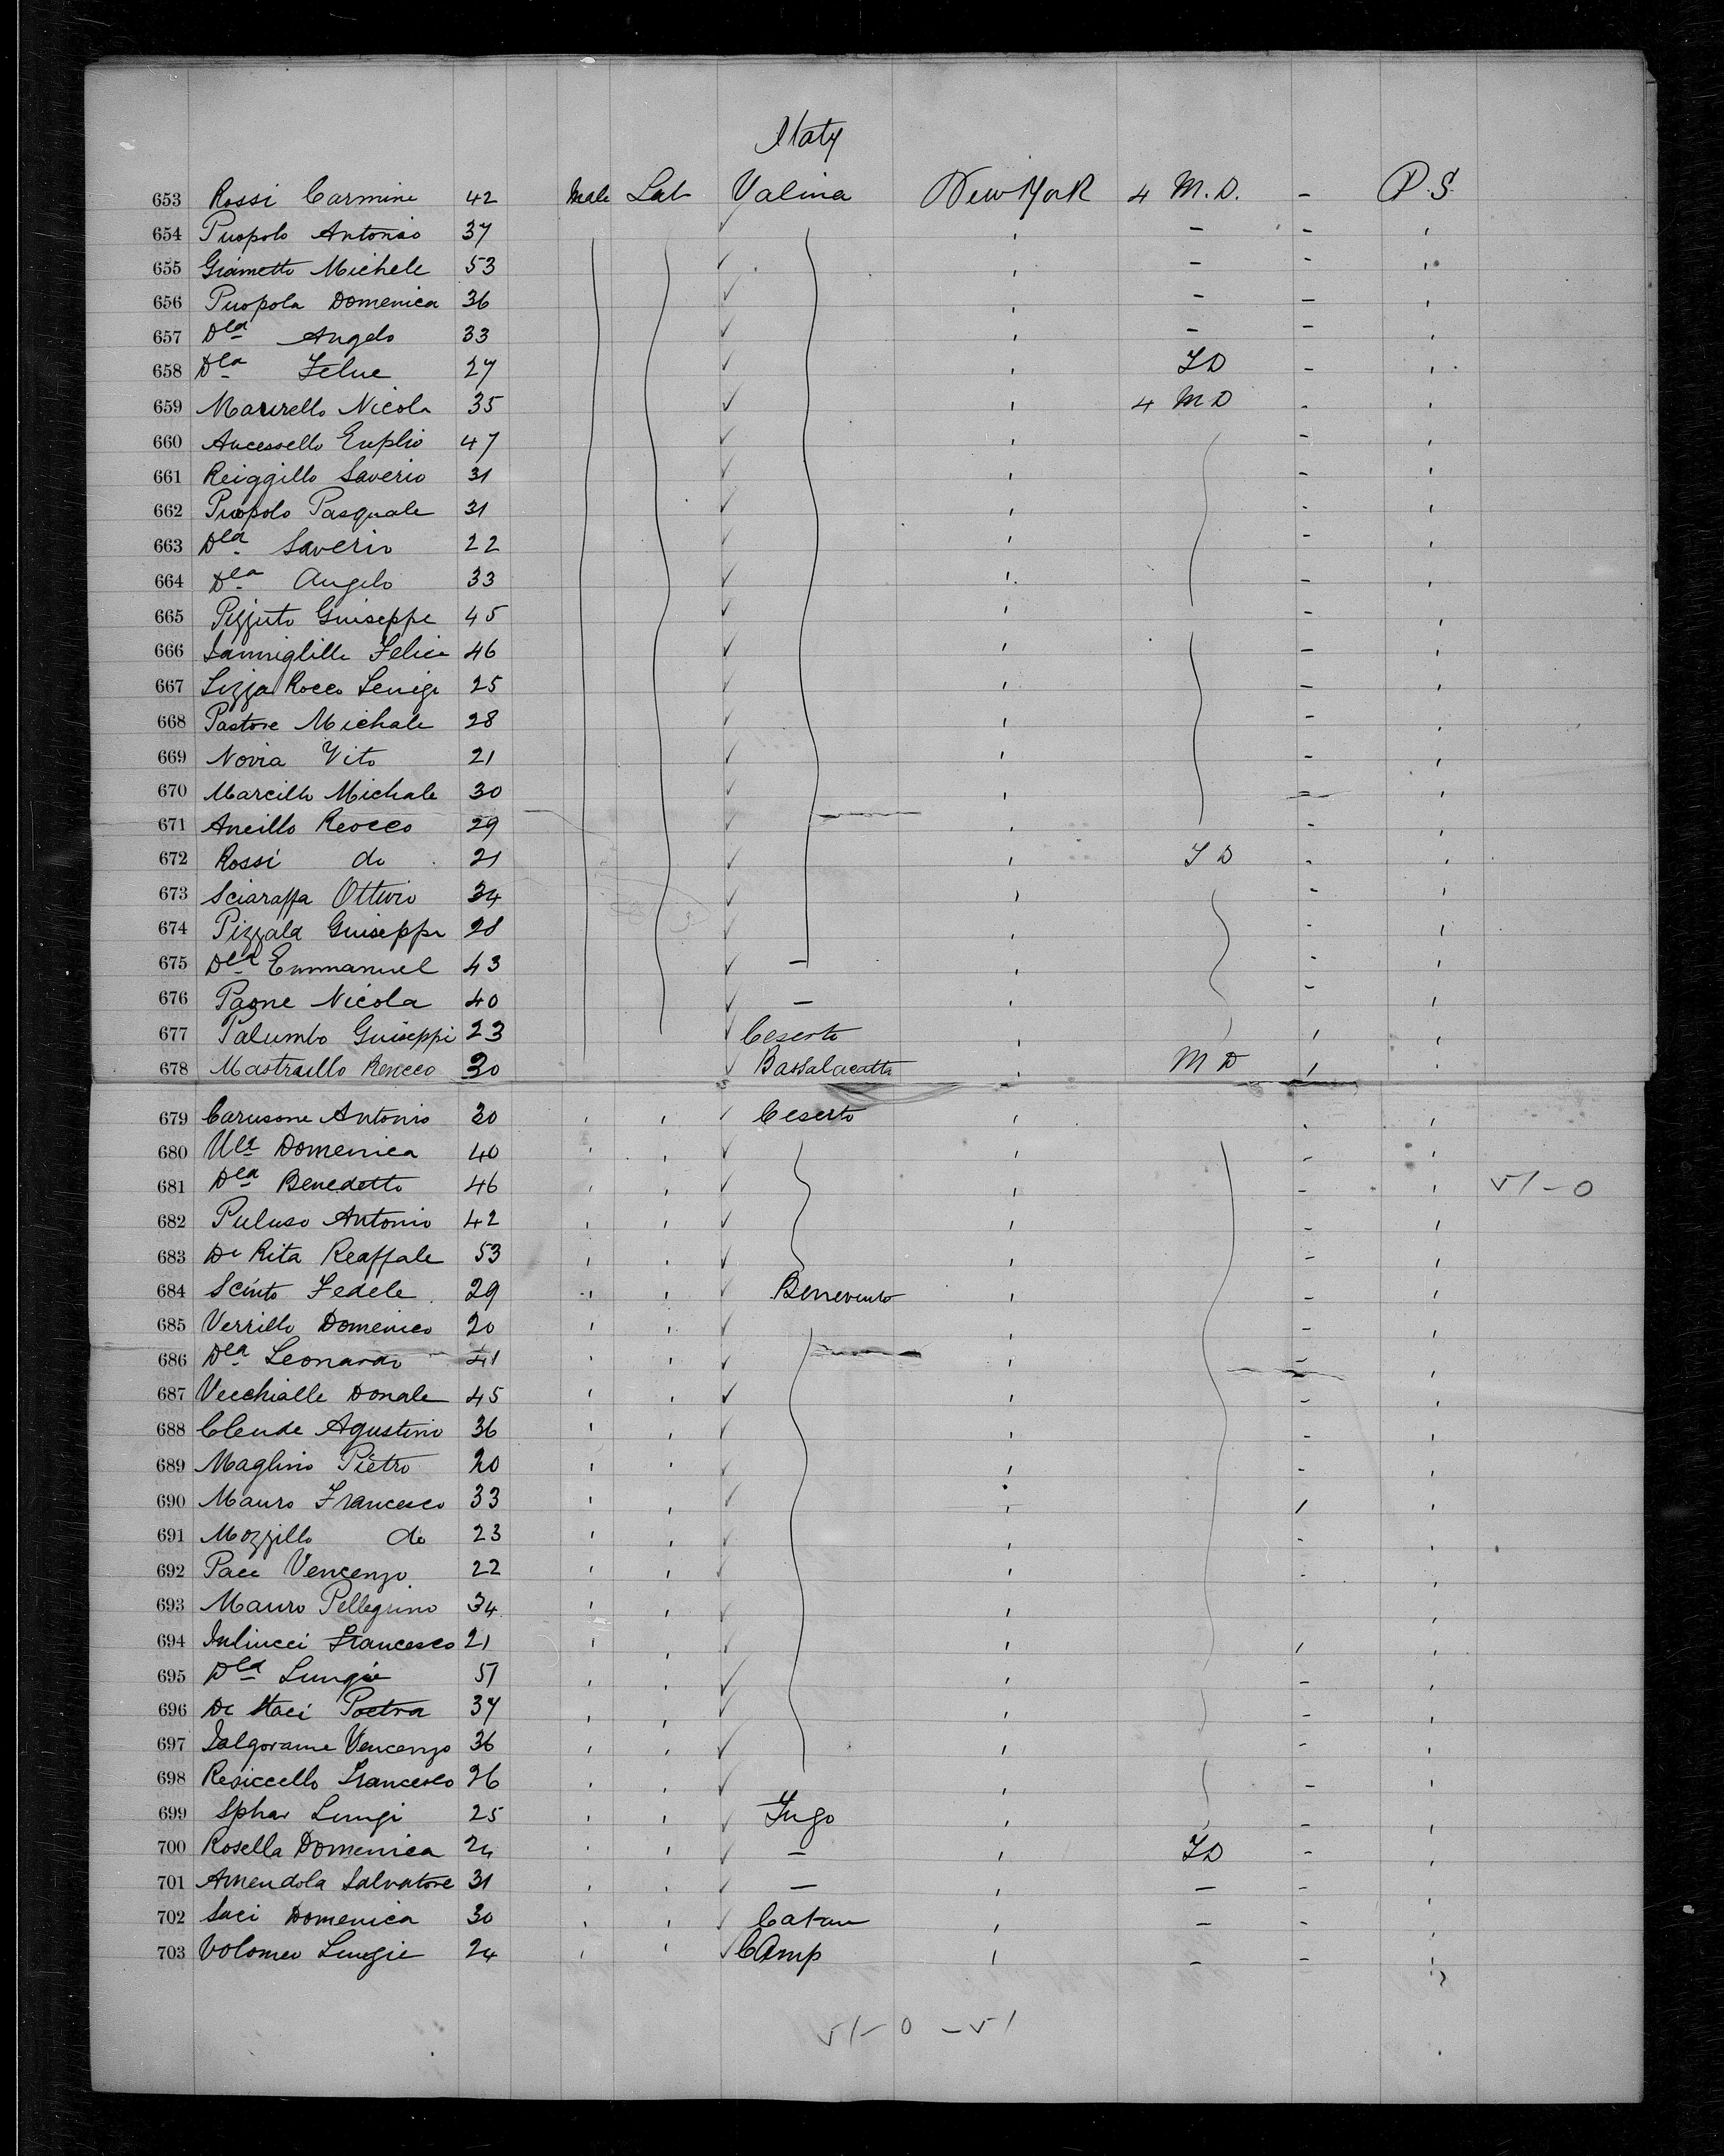 Italy
653 Rossi Carmine 42 Male Lab Valina New York 4 M.D. - P.S.
654 Puopolo Antonio 37 ✓ ' - - '
655 Giametto Michele 53 ✓ ' - - '
656 Puopola Domenica 36 ✓ ' - - '
657 Dla Angelo 33 ✓ ' - - '
658 Dla Felice 27 ✓ ' ID - '
659 Maurello Nicola 35 ✓ ' 4 MD - '
660 Euplio 47 ✓ ' - '
661 Reiggillo Saverio 31 ✓ ' - '
662 Puopolo Pasquale 31 ✓ ' - '
663 Dla Saverio 22 ✓ ' - '
664 Dla Angelo 33 ✓ ' - '
665 Pizzuto Guiseppe 45 ✓ ' - '
666 Felice 46 ✓ ' - '
667 Lizza Rocco 25 ✓ ' - '
668 Pastore Michale 28 ✓ ' - '
669 Novia Vito 21 ✓ ' - '
670 Marcillo Michale 30 ✓ ' - '
671 Ancillo Reocco 29 ✓ ' - '
672 Rossi do 21 ✓ ' ID - '
673 Sciaraffa 34 ✓ ' - '
674 Pizzala Guiseppi 28 ✓ ' - '
675 Dla Emmanuel 43 ✓ - ' - '
676 Pagne Nicola 40 ✓ - ' - '
677 Palumbo Guiseppi 23 ✓ Ceserto ' ' '
678 Mastraillo 30 ✓ ' MD ' '
679 Carusone Antonio 30 ' ' ✓ Ceserto ' - '
680 Domenica 40 ' ' ✓ ' - '
681 Dla Benedetto 46 ' ' ✓ ' - ' 51-0
682 Puluso Antonio 42 ' ' ✓ ' - '
683 De Rita Reaffale 53 ' ' ✓ ' - '
684 Scinto Fedele 29 ' ' ✓ Benevento ' - '
685 Verrillo Domenico 20 ' ' ✓ ' - '
686 Dla Leonardo 41 ' ' ✓ ' - '
687 Vecchialle Donale 45 ' ' ✓ ' - '
688 Agustino 36 ' ' ✓ ' - '
689 Maglino Pietro 20 ' ' ✓ ' - '
690 Mauro Francesco 33 ' ' ✓ ' ' '
691 Mozzillo do 23 ' ' ✓ ' - '
692 Pace Vencenzo 22 ' ' ✓ ' - '
693 Mauro Pellegrino 34 ' ' ✓ ' '
694 Francesco 21 ' ✓ ' ' '
695 Dla Lungie 51 ' ' ✓ ' - '
696 De Staci 37 ' ' ✓ ' - '
697 Vencenzo 36 ' ' ✓ ' - '
698 Resiccello Francesco 26 ' ' ✓ ' - '
699 Sphar Lungi 25 ' ' ✓ ' - '
700 Rosella Domenica 24 ' ' ✓ - ' ID - '
701 Amendola Salvatore 31 ' ' ✓ - ' - - '
702 Saci Domenica 30 ' ' ✓ ' - - '
703 Volomeo Lungie 24 ' ' ✓ Camp ' - - '
51-0-51